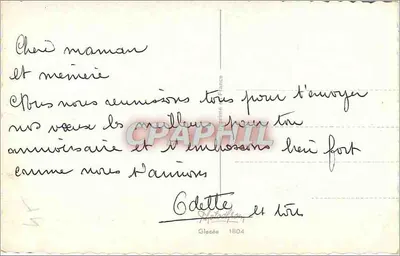 Chère maman
et mémère
Nous nous réunissons tous pour t'envoyer
nos vœux les meilleurs pour ton
anniversaire et t'embrassons bien fort
comme nous t'aimons
Odette
et tous
CPAPHIL
Glacée 1804